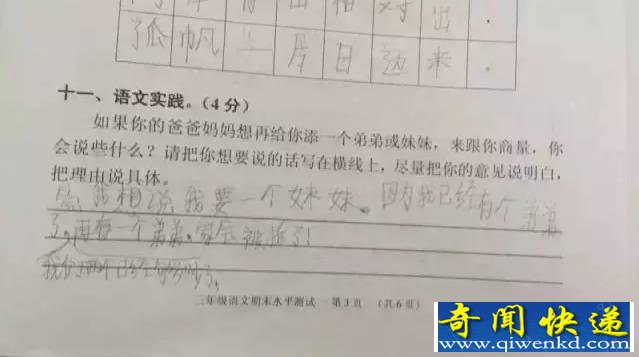 出 相 对 出 .
孤 帆 一 片 日 边 来 .
十一、语文实践。(4分)
如果你的爸爸妈妈想再给你添一个弟弟或妹妹，来跟你商量，你
会说些什么？请把你想要说的话写在横线上，尽量把你的意见说明白，
把理由说具体。
答：我想说，我要一个妹妹。因为我已经有个弟弟
了，再有一个弟弟，家会被拆了！
我们两个已经够
三年级语文期末水平测试 第3页 (共6页)
奇闻快递
www.qiwenkd.com